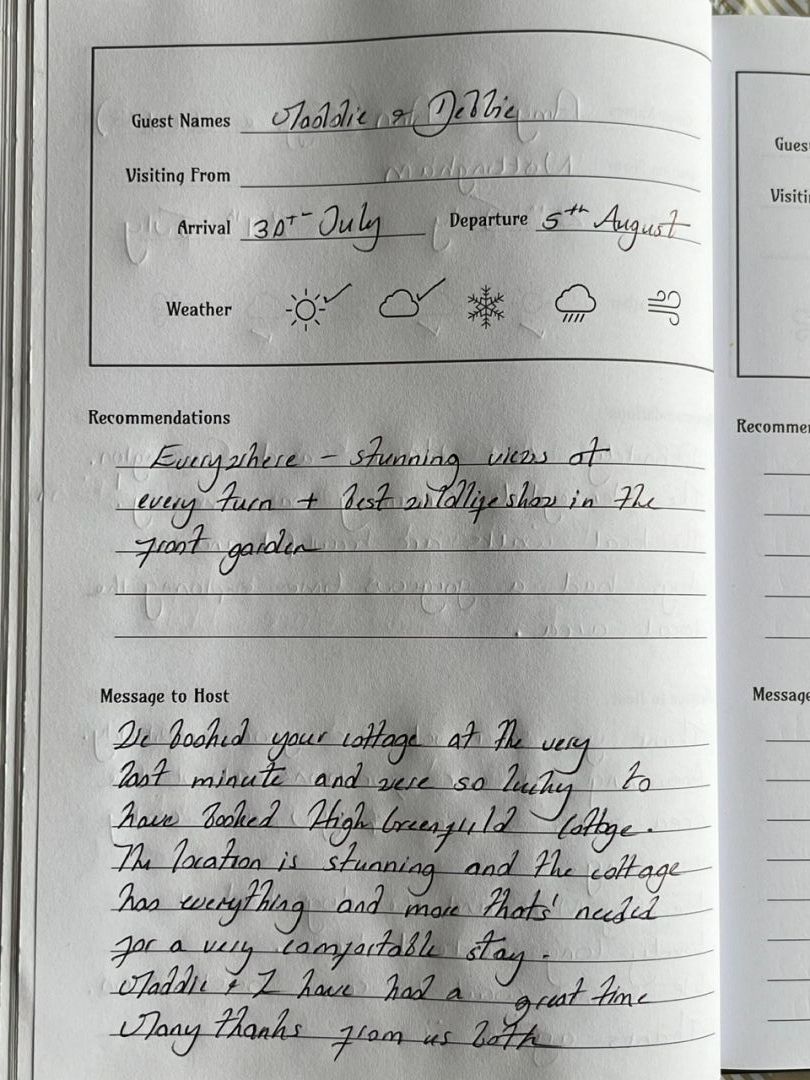 Guest Names Maddie & Debbie
Visiting From
Arrival 30th July Departure 5th August
Weather
Recommendations
Everywhere - stunning views at
every turn + best wildlife show in the
front garden
Message to Host
We booked your cottage at the very
last minute and were so lucky to
have booked High Greenfield Cottage.
The location is stunning and the cottage
has everything and more thats' needed
for a very comfortable stay.
Maddie & I have had a great time
Many thanks from us both
Gues
Visiti
Recommen
Message